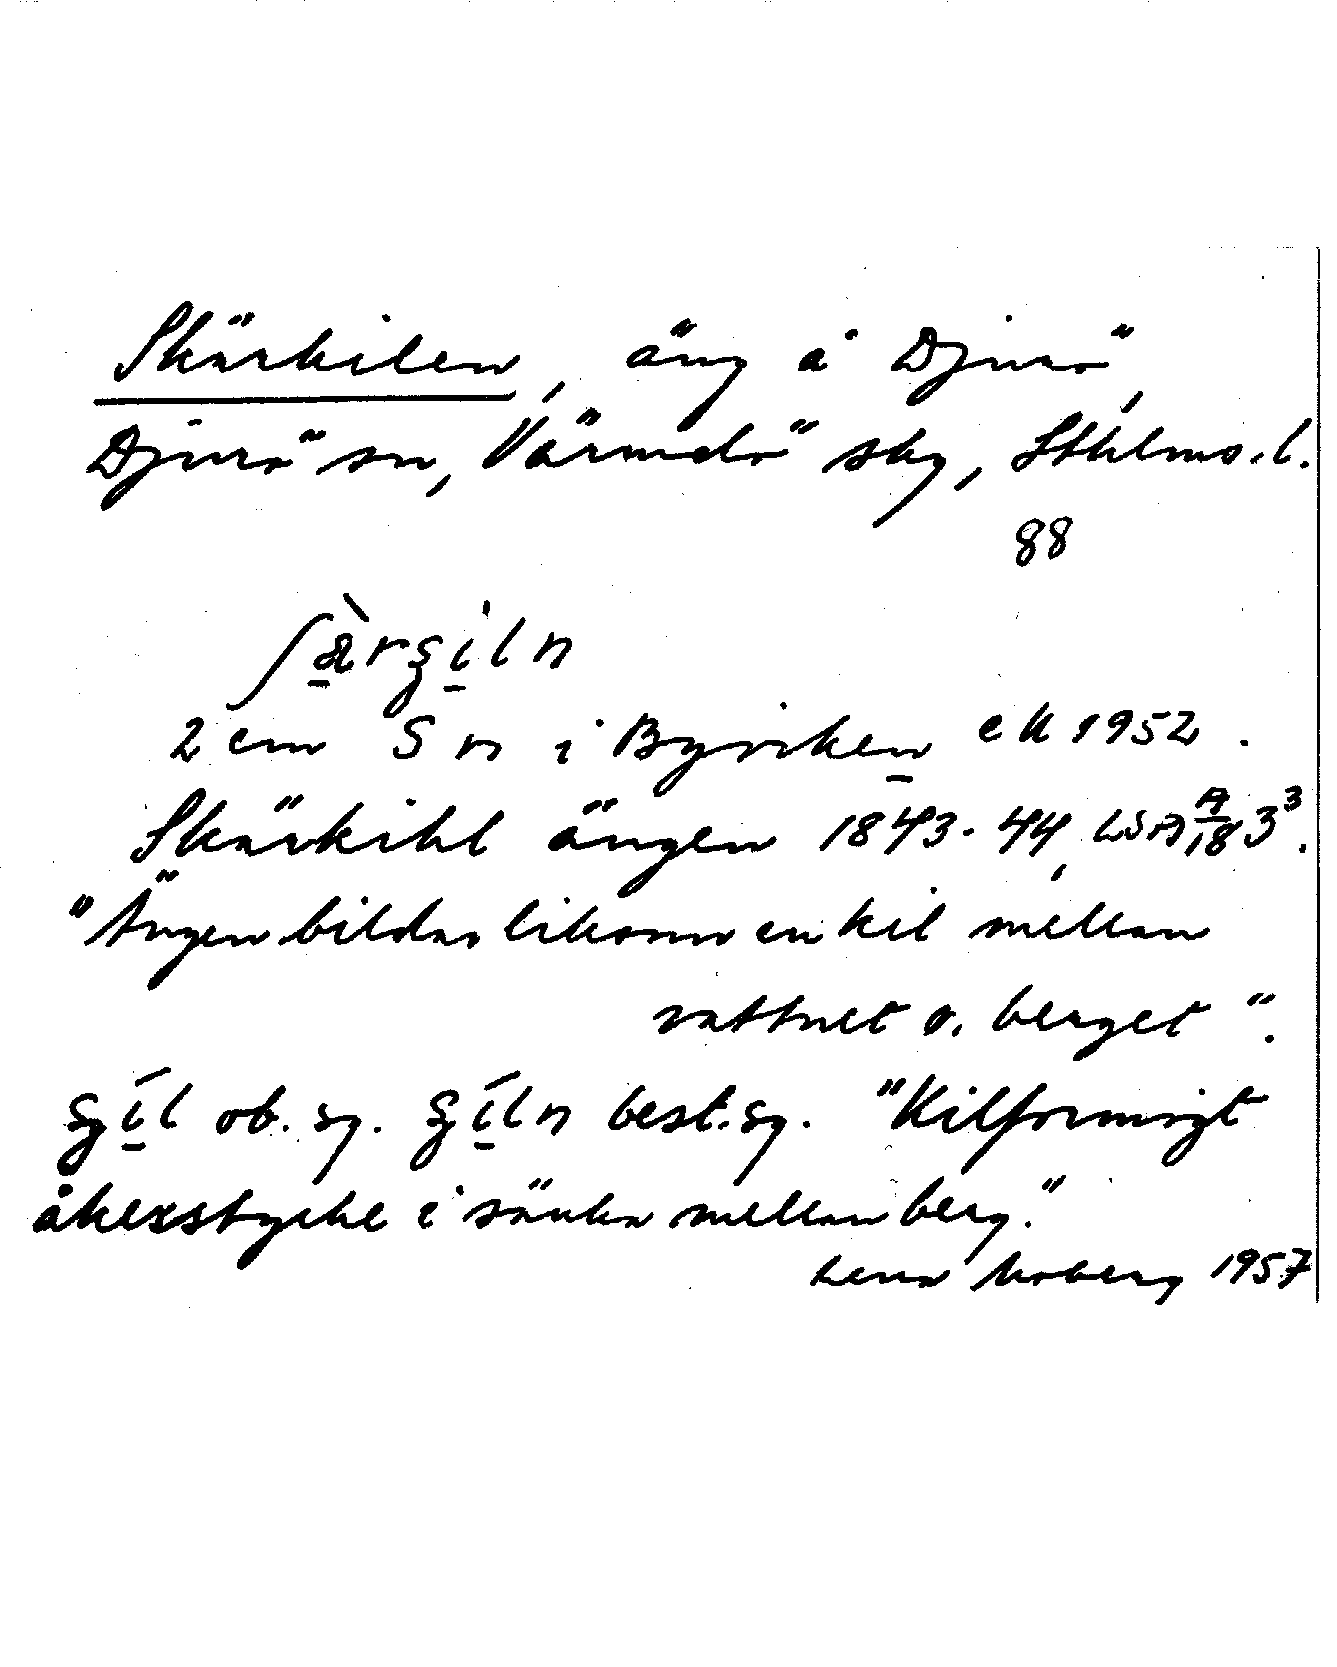 Skärkilen, äng å Djurö,
Djurö sn, Värmdö skg, Sthlms.l.
88
2 cm S n i Byviken ek 1952.
Skärkihl ängen 1843-44, LSA A/18 3³.
"Ängen bildar liksom en kil mellan
vattnet o. berget".
ob. sg. best. sg. "Kilformigt
åkerstycke i sänka mellan berg."
Lena Moberg 1957